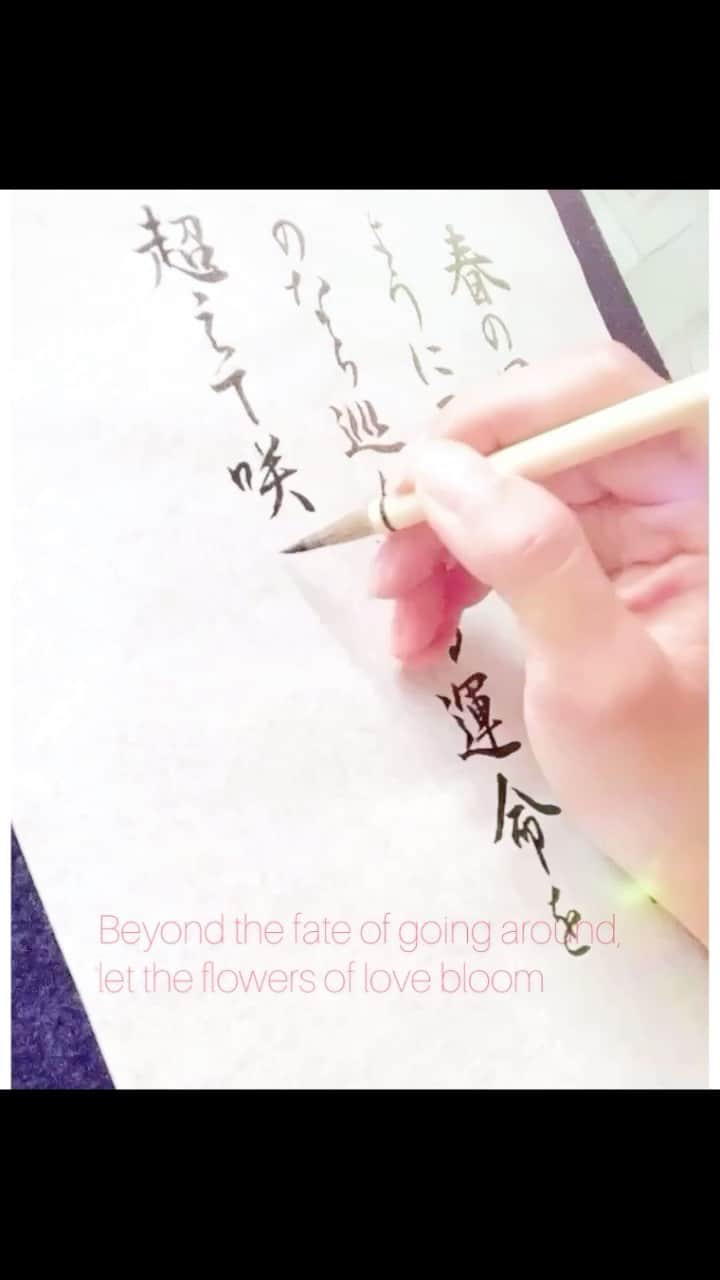 春の
ように
のなら巡 運命を
超えて咲
Beyond the fate of going around,
let the flowers of love bloom